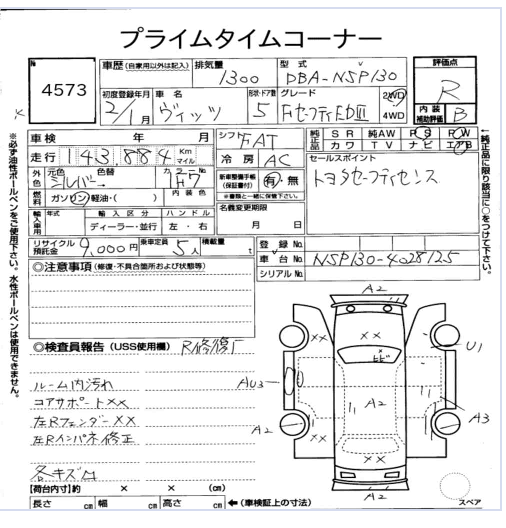 プライムタイムコーナー
No. 4573
車歴 (自家用以外は記入)
排気量 1300
型式 DBA-NSP130
評価点 R
内装補助評価 B
初度登録年月 2/1月
車名 ヴィッツ
形状・ドア数 5
グレード FセーフティEDⅢ
2WD
4WD
車検 年 月
シフト FAT
純正品 SR 純AW PS PW
カワ TV ナビ エアB
走行 143,884 Km マイル
冷房 AC
セールスポイント
トヨタセーフティセンス
外色 元色 シルバー 色替 カラーNo.
新車整備手帳 (保証書付) 有・無
※書類と一緒に保管下さい。
燃料 ガソリン 軽油・( ) 内装色
名義変更期限
月 日
輸入車用 年式 輸入区分 ハンドル
ディーラー・並行 左・右
リサイクル預託金 9,000円 乗車定員 5人 積載量 t
登録No.
車台No. NSP130-4028125
シリアルNo.
◎注意事項 (修復・不具合箇所および状態等)
◎検査員報告 (USS使用欄) R修復了
ルーム内汚れ
コアサポートXX
左RフェンダーXX
左Rインパネ修正
各キズ凹
【荷台内寸】約 × × (cm)
長さ cm 幅 cm 高さ cm ←(車検証上の寸法)
※必ず油性ボールペンをご使用下さい。水性ボールペンは使用できません。
←純正品に限り該当に○をつけて下さい。
A2
XX
XX
U1
AU3
A2
A3
A2
XX
XX
A2
スペア